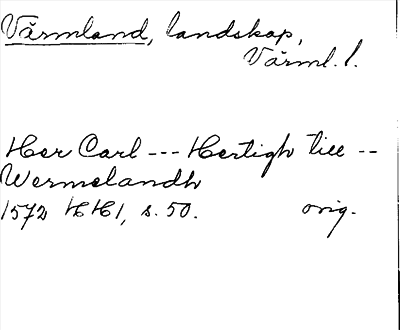 Värmland, landskap,
Värml. l.
Her Carl --- Hertigh till --
Wermelandh
1572 HH1, s. 50. orig.